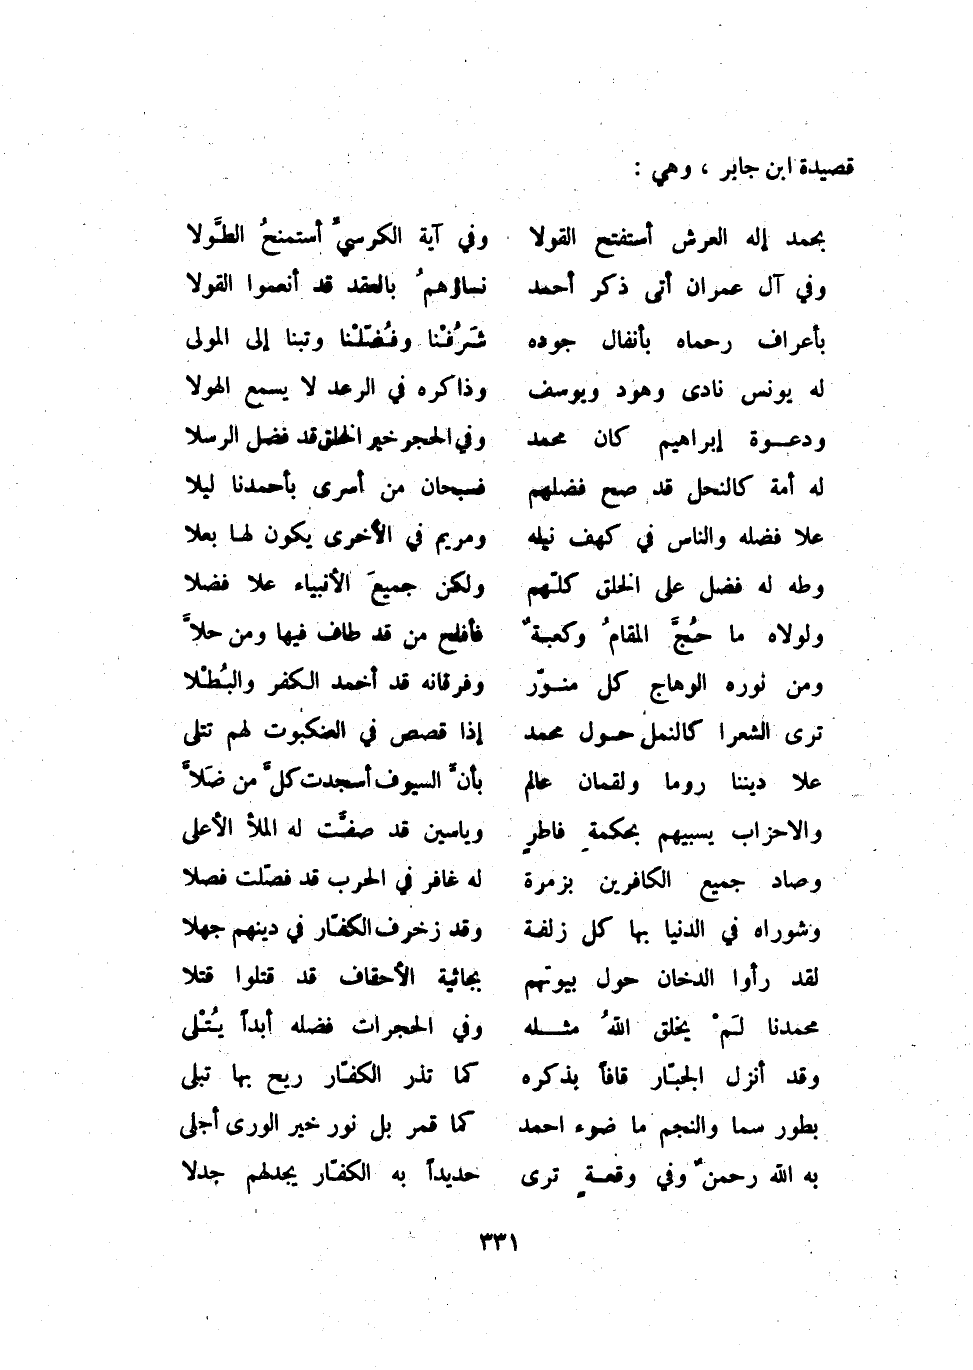 قصيدة ابن جابر ، وهي :
بحمد إله العرش أستفتح القولا وفي آية الكرسيِّ أستمنحُ الطَّولا
وفي آل عمران أتى ذكر أحمد نساؤهمُ بالعقد قد أنعموا القولا
بأعراف رحماه بأنفال جوده شَرُفْنا وفُضّلْنا وتبنا إلى المولى
له يونس نادى وهود ويوسف وذاكره في الرعد لا يسمع الهولا
ودعوة إبراهيم كان محمد وفي الحجر خير الخلق قد فضل الرسلا
له أمة كالنحل قد صح فضلهم فسبحان من أسرى بأحمدنا ليلا
علا فضله والناس في كهف نيله ومريم في الأخرى يكون لها بعلا
وطه له فضل على الخلق كلّهم ولكن جميعَ الأنبياء علا فضلا
ولولاه ما حُجَّ المقامُ وكعبةٌ فأفلح من قد طاف فيها ومن حلاَّ
ومن نوره الوهاج كل منوّر وفرقانه قد أخمد الكفر والبُطْلا
ترى الشعرا كالنمل حول محمد إذا قصص في العنكبوت لهم تتلى
علا ديننا روما ولقمان عالم بأنَّ السيوف أسجدت كلَّ من ضَلاَّ
والاحزاب يسبيهم بحكمةِ فاطرٍ وياسين قد صفَّت له الملأ الأعلى
وصاد جميع الكافرين بزمرة له غافر في الحرب قد فصّلت فصلا
وشوراه في الدنيا بها كل زلفة وقد زخرف الكفّار في دينهم جهلا
لقد رأوا الدخان حول بيوتهم بجاثية الأحقاف قد قتلوا قتلا
محمدنا لَمْ يخلق اللهُ مثله وفي الحجرات فضله أبداً يُتْلى
وقد أنزل الجبّار قافاً بذكره كما تذر الكفّار ريح بها تبلى
بطور سما والنجم ما ضوء احمد كما قمر بل نور خير الورى أجلى
به الله رحمنٌ وفي وقعةٍ ترى حديداً به الكفّار يجدلهم جدلا
٣٣١